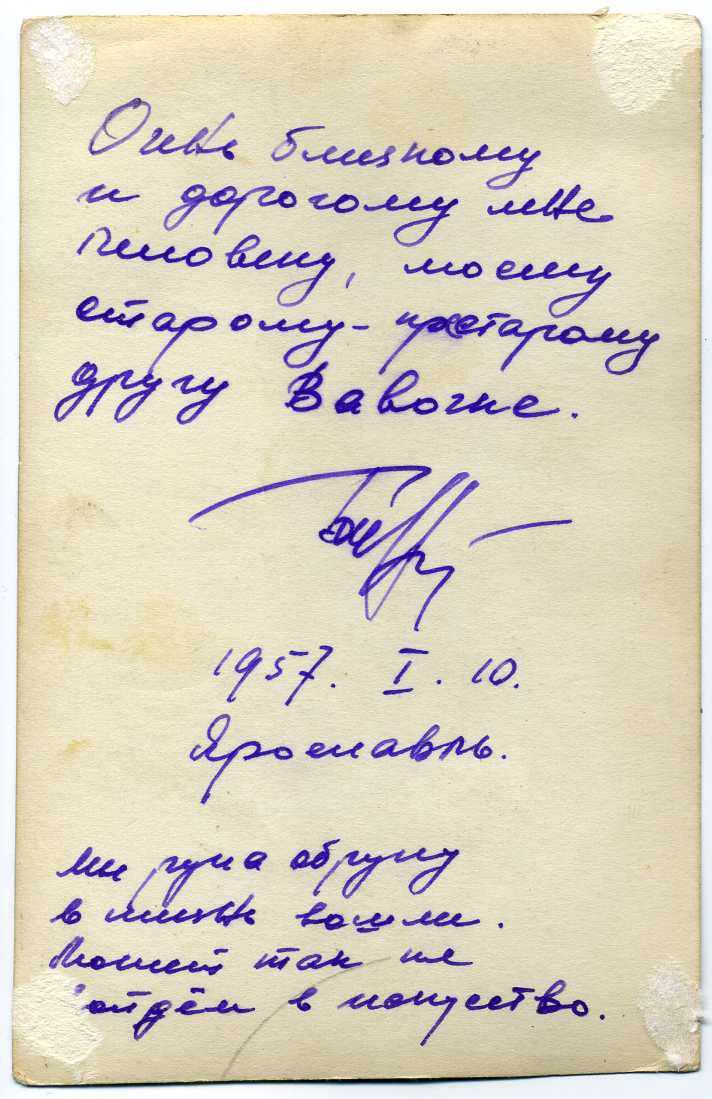 Очень близкому
и дорогому мне
человеку, моему
старому-престарому
другу Вавочке.
1957. I. 10.
Ярославль.
Мы рука об руку
в жизнь вошли.
Может так же
войдём в искусство.